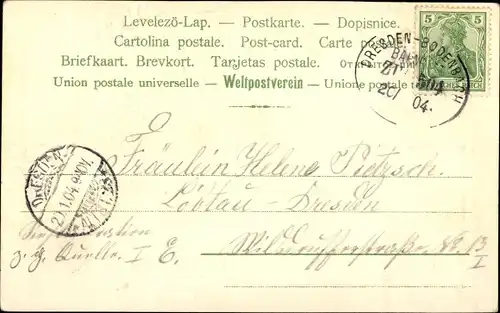 Levelezö-Lap. — Postkarte. — Dopisnice.
Cartolina postale. Post-card. Carte
Briefkaart. Brevkort. Tarjetas postale.
Union postale universelle — Weltpostverein — Unione postale
5 5
DRESDEN-BODENBACH
04.
DRESDEN-
Fräulein Helene Pietzsch.
Löbtau-Dresden
z. Quelle. I E.
Wilsdrufferstraße. No 13
I